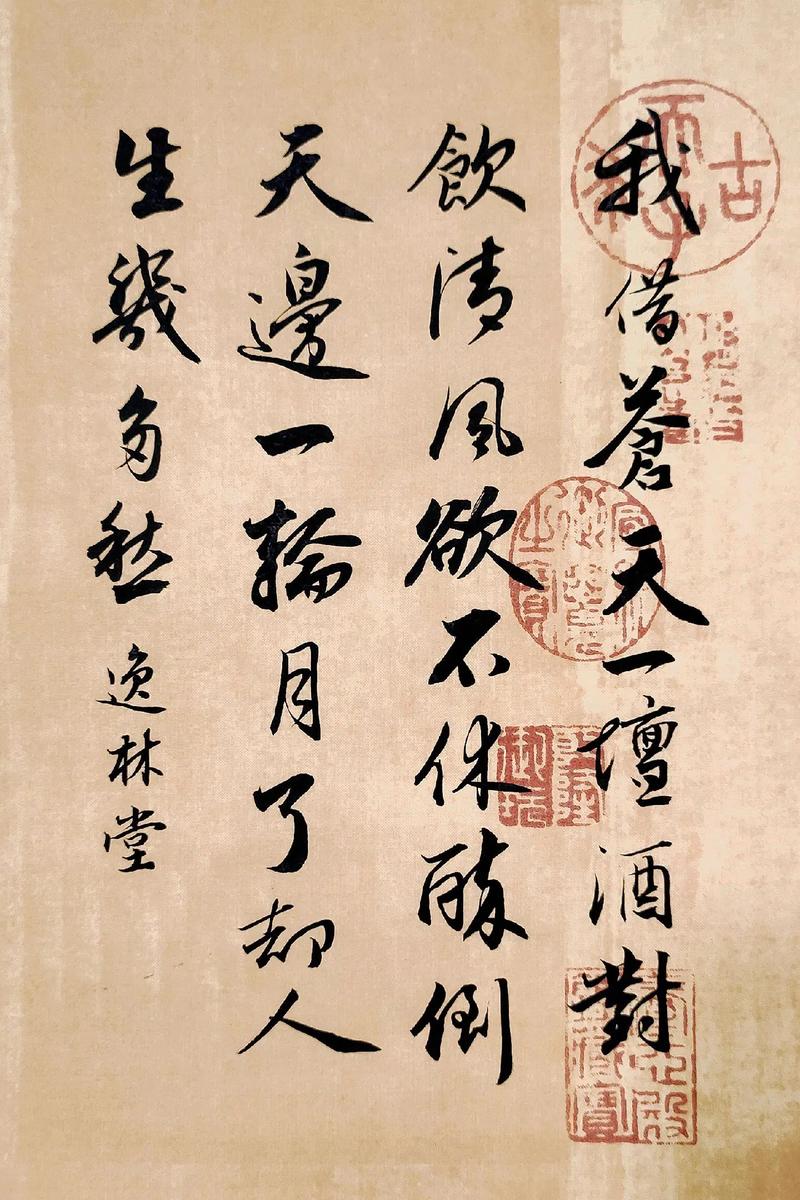 我借蒼天一壇酒對
飲清風欲不休醉倒
天邊一輪月了却人
生幾多愁
逸林堂